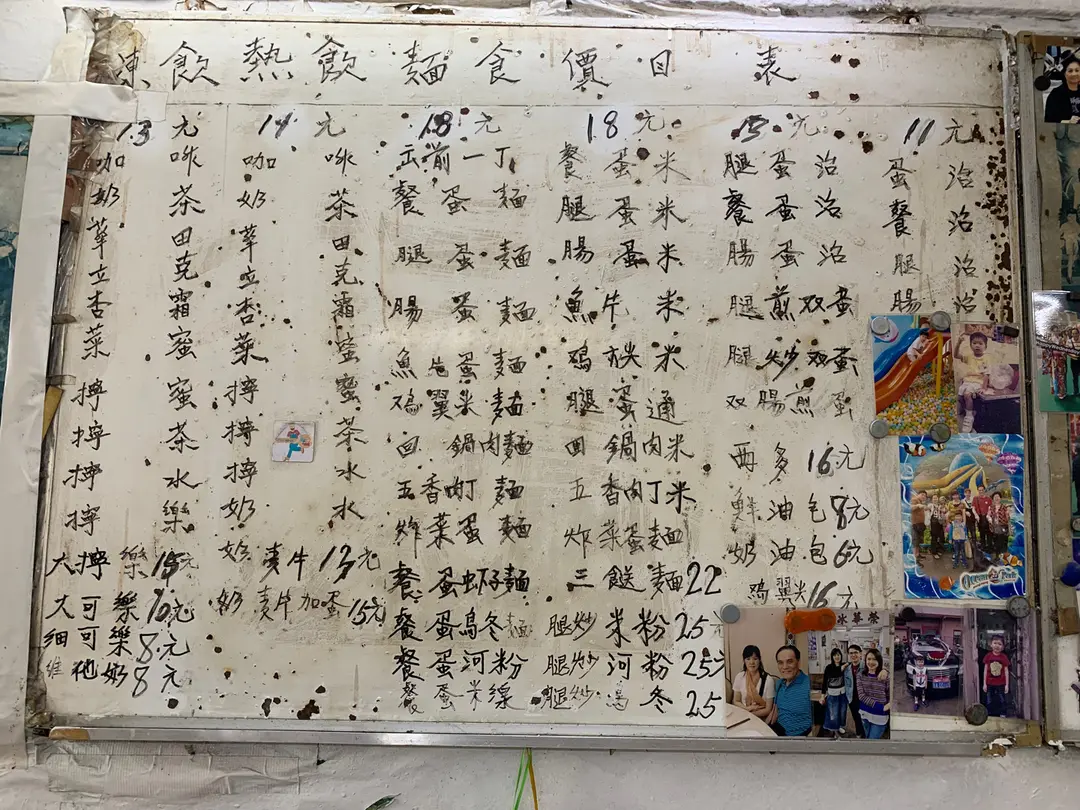 凍飲熱飲麵食價目表
13元
咖啡
奶茶
華田
立克
杏霜
菜蜜
擰蜜
擰茶
擰水
擰樂
大擰樂15元
大可樂10元
細可樂8元
維他奶8元
14元
咖啡
奶茶
華田
立克
杏霜
菜蜜
擰蜜
擰茶
擰水
奶水
奶麦片13元
奶麦片加蛋15元
18元
出前一丁
餐蛋麵
腿蛋麵
腸蛋麵
魚片蛋麵
鸡翼米麵
回鍋肉麵
五香肉丁麵
炸菜蛋麵
餐蛋虾子麵
餐蛋烏冬麵
餐蛋河粉
餐蛋米線
18元
餐蛋米
腿蛋米
腸蛋米
魚片米
鸡米
腿蛋通
回鍋肉米
五香肉丁米
炸菜蛋麵
三餸麵22
腿炒米粉25元
腿炒河粉25元
腿炒烏冬25
15元
腿蛋治
餐蛋治
腸蛋治
腿煎双蛋
腿炒双蛋
双腸煎蛋
西多16元
鮮油包8元
奶油包6元
鸡翼16元
11元
蛋治
餐治
腿治
腸治
冰華榮
Ocean Park